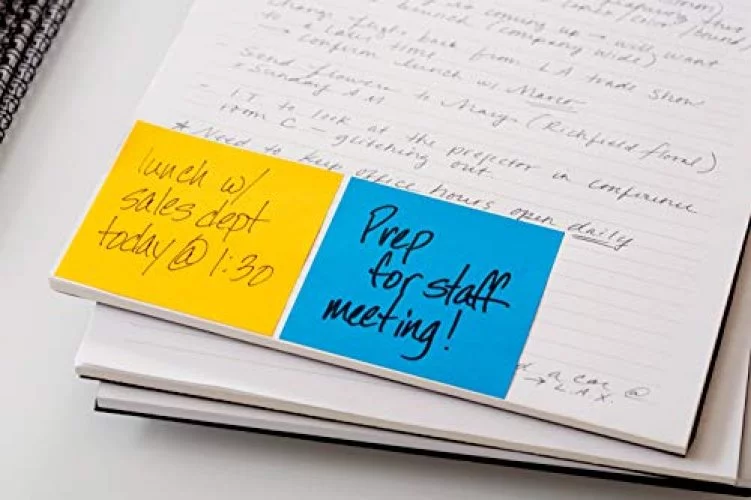 coming up → will want
brunch (company wide)
→ a later time
change flight back from LA trade show
→ confirm lunch w/ Marco
- Send flowers to Margo (Richfield floral)
* Sunday AM
- I.T. to look at the projector in conference
room C - glitching out.
* Need to keep office hours open daily
lunch w/
sales dept
today @ 1:30
Prep
for staff
meeting!
a car @
→ L.A.X.